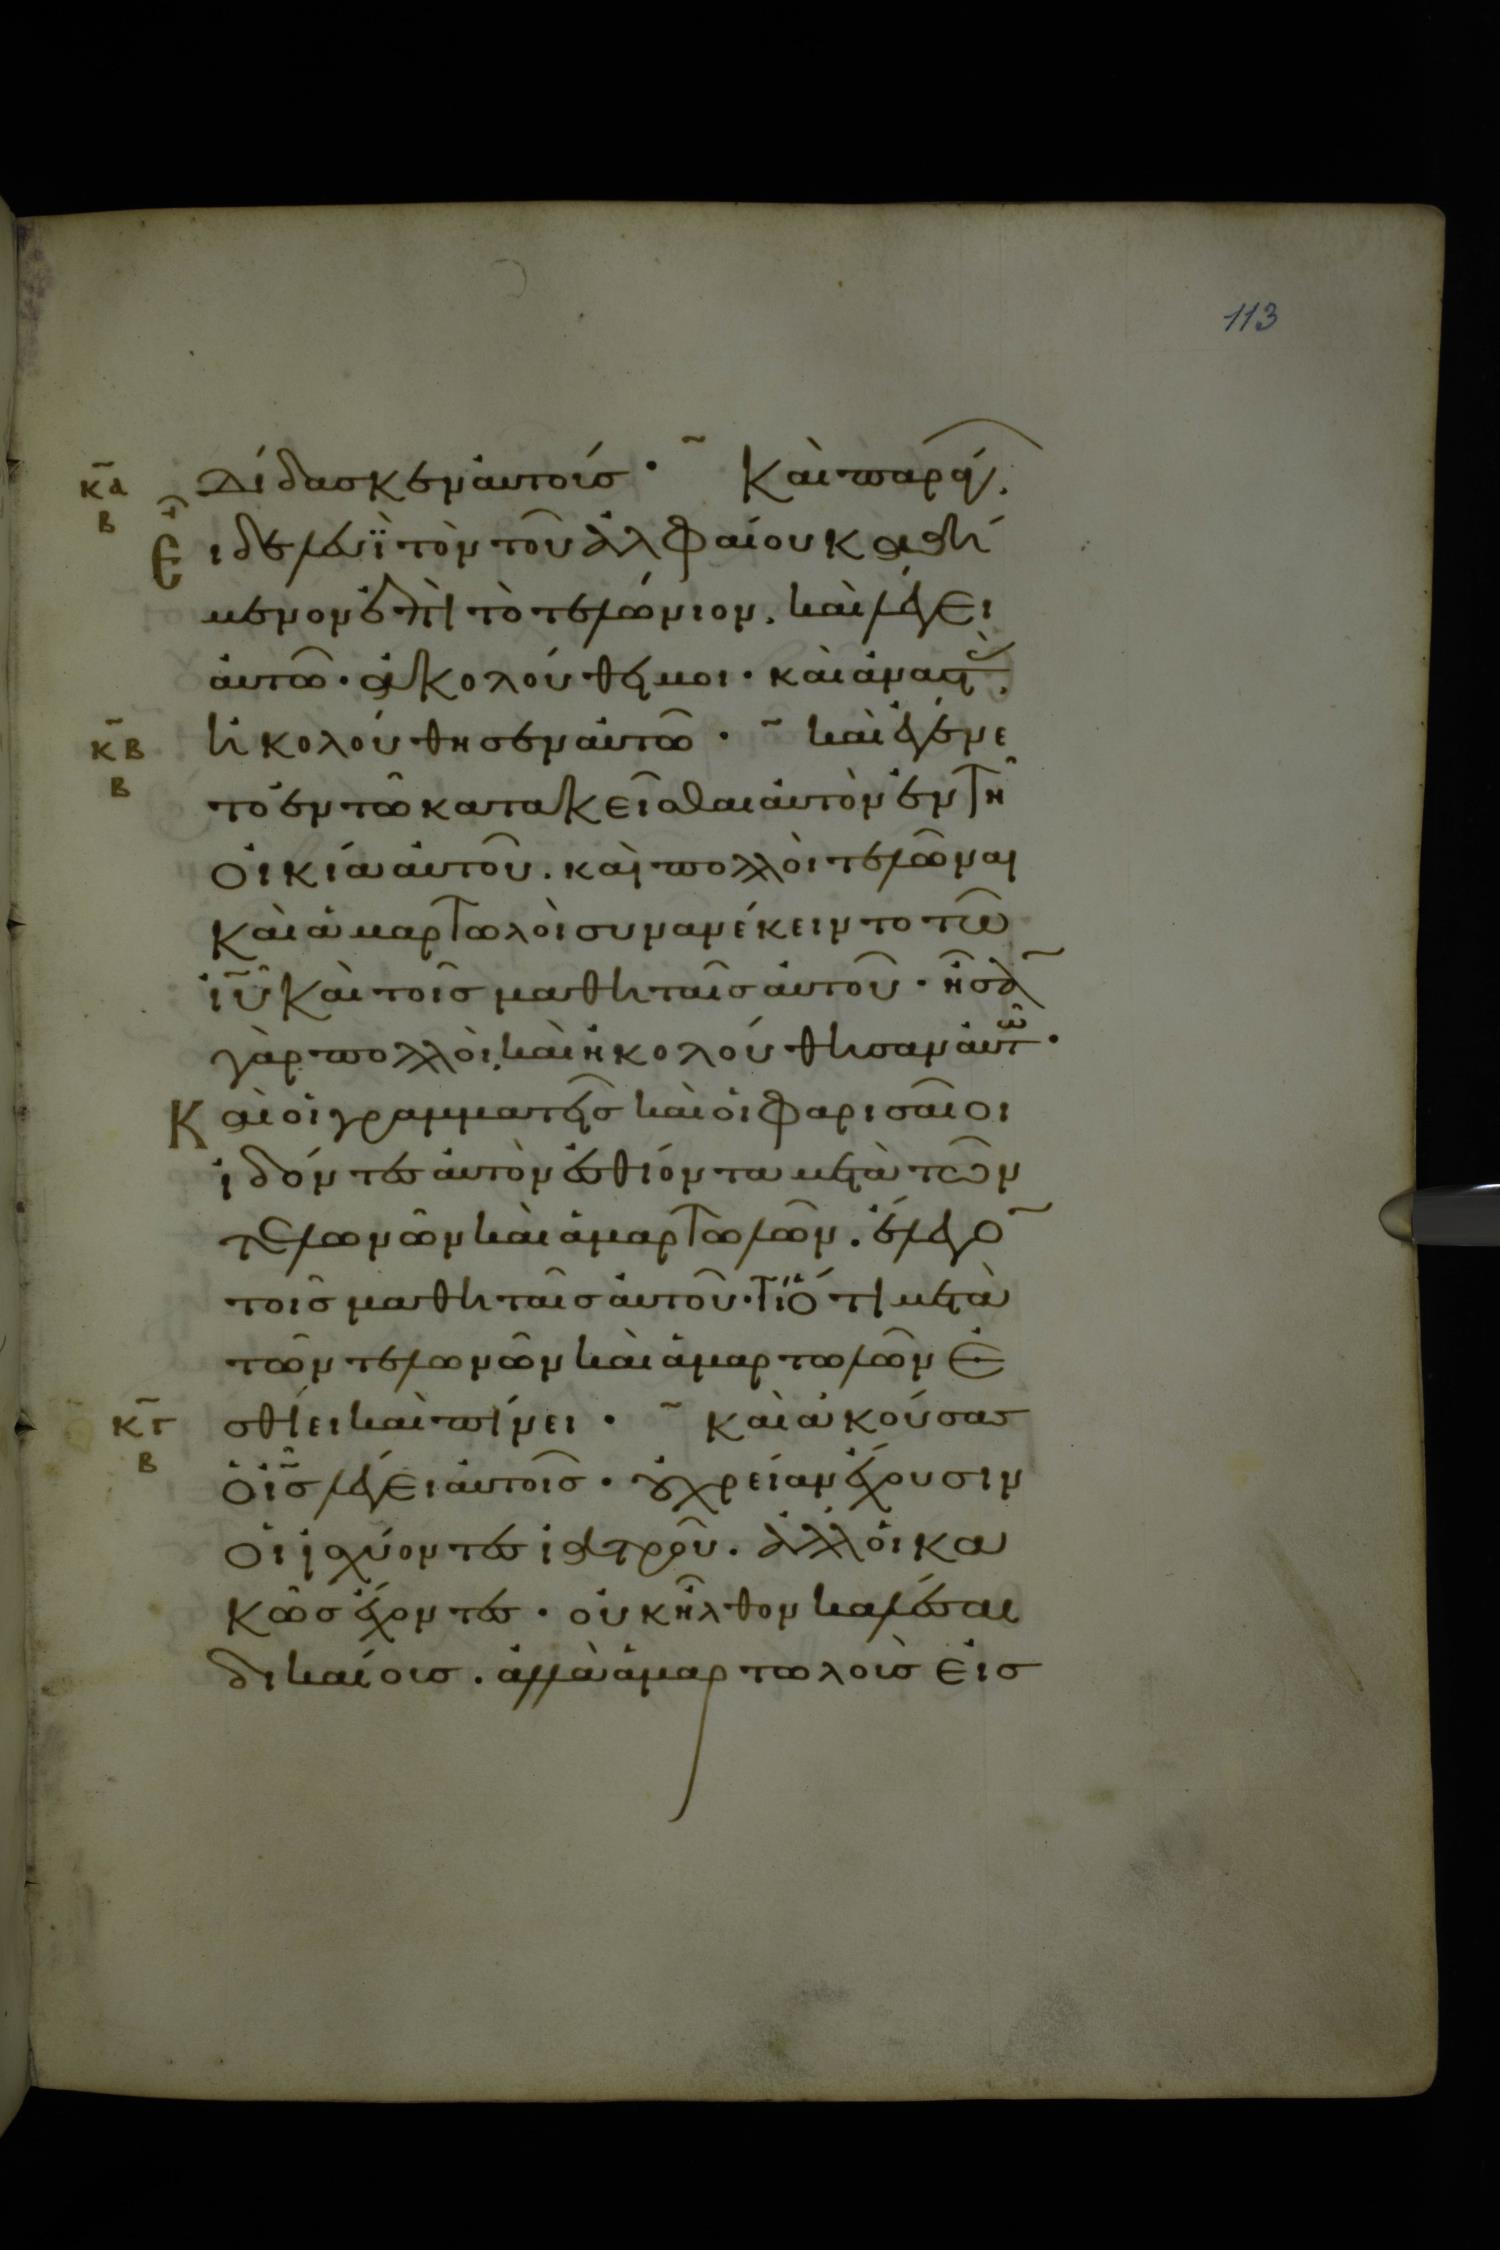 113
κα δίδασκεν αυτοίσ · ~ Καὶ παράγ.
β
Ε ιδε λευϊ τὸν τοῦ ἀλφαίου καθή
μενον ἐπὶ τὸ τελώνιον. καὶ λέγει
ἀυτῶ · ἀκολούθει μοι · καὶ ἀναστὰς.
κβ ἠκολούθησεν ἀυτῶ · ~ καὶ ἐγένε
β
το ἐν τῶ κατακεῖσθαι ἀυτὸν ἐν τῆ
ὀικία ἀυτοῦ. καὶ πολλὸι τελῶναι
Καὶ ἁμαρτωλὸι συνανέκειντο τῶ
ἰῦ Καὶ τοῖσ μαθηταῖσ ἀυτοῦ · ἦσαν
γὰρ πολλὸι, καὶ ἠκολούθησαν ἀυτῶ ·
Κ αὶ ὁι γραμματεῖσ καὶ ὁι φαρισαῖοι
ἰδόντεσ ἀυτὸν ἐσθίοντα μετὰ τῶν
τελωνῶν καὶ ἁμαρτωλῶν. ἔλεγο
τοῖσ μαθηταῖσ ἀυτοῦ · Τί ὅτι μετὰ
τῶν τελωνῶν καὶ ἁμαρτωλῶν ἐ
κγ σθίει καὶ πίνει · ~ Καὶ ἀκούσασ
β
ὁ ἰσ λέγει ἀυτοῖσ · ὀυ χρείαν ἔχουσιν
ὁι ἰσχύοντεσ ἰατροῦ. ἀλλ ὁι κα
κῶσ ἔχοντεσ · ὀυκ ἦλθον καλέσαι
δικαίουσ. ἀλλὰ ἁμαρτωλοὺσ ἐισ